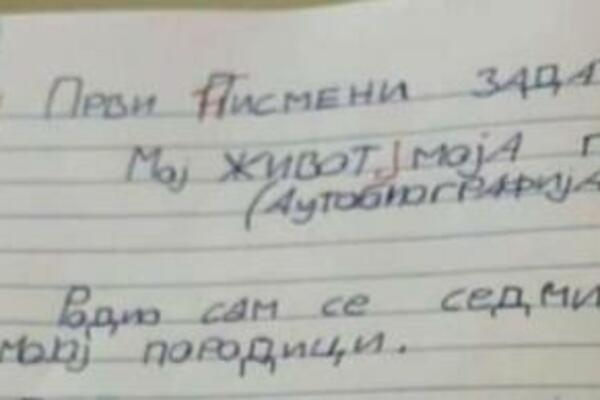 Први Писмени зада
Мој живот, моја п
(Аутобиографија
Родио сам се седми
мојој породици.